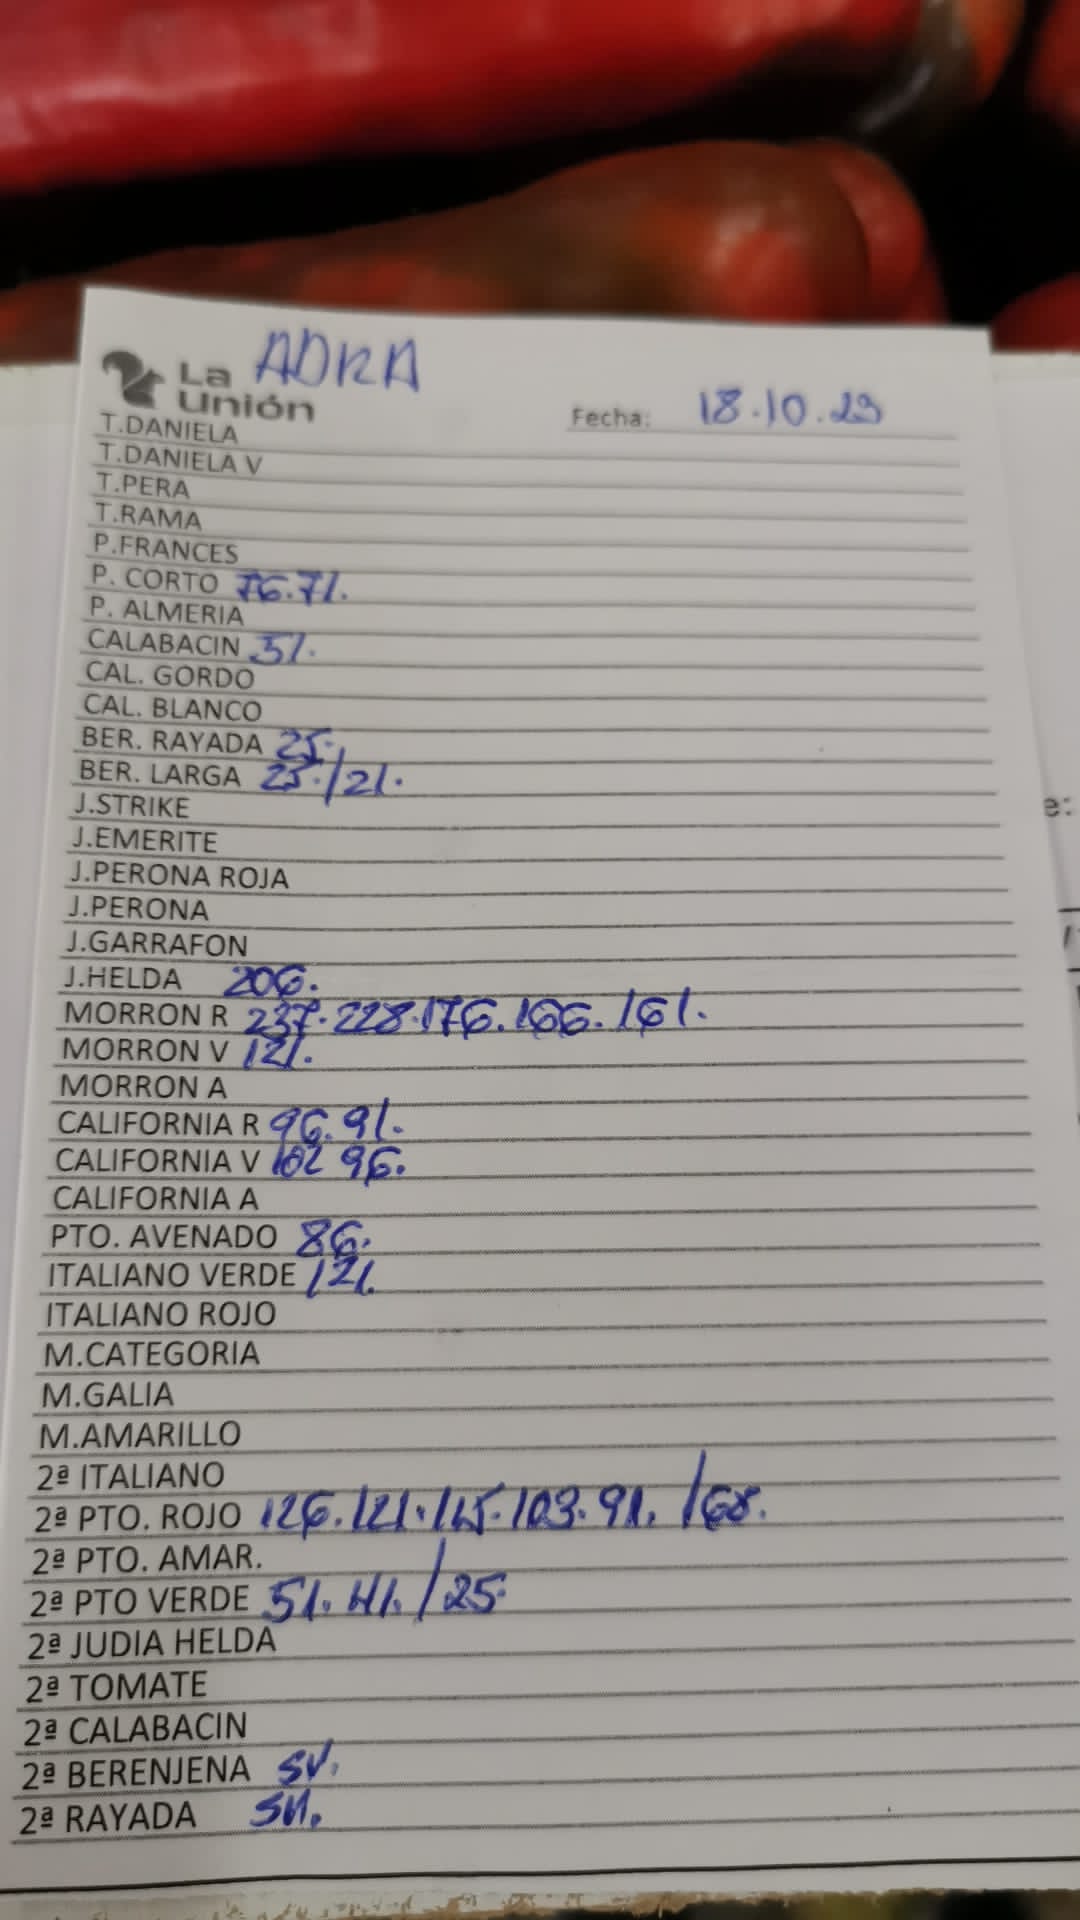 La ADRA
Unión
Fecha: 18.10.23
T.DANIELA
T.DANIELA V
T.PERA
T.RAMA
P.FRANCES
P. CORTO 76.71.
P. ALMERIA
CALABACIN 51.
CAL. GORDO
CAL. BLANCO
BER. RAYADA 25.
BER. LARGA 25./21.
J.STRIKE
J.EMERITE
J.PERONA ROJA
J.PERONA
J.GARRAFON
J.HELDA 206.
MORRON R 237.228.176.166./161.
MORRON V 121.
MORRON A
CALIFORNIA R 96.91.
CALIFORNIA V 102 96.
CALIFORNIA A
PTO. AVENADO 86.
ITALIANO VERDE 121.
ITALIANO ROJO
M.CATEGORIA
M.GALIA
M.AMARILLO
2ª ITALIANO
2ª PTO. ROJO 126.121.115.103.91./68.
2ª PTO. AMAR.
2ª PTO VERDE 51.41./25.
2ª JUDIA HELDA
2ª TOMATE
2ª CALABACIN
2ª BERENJENA SV.
2ª RAYADA
e: